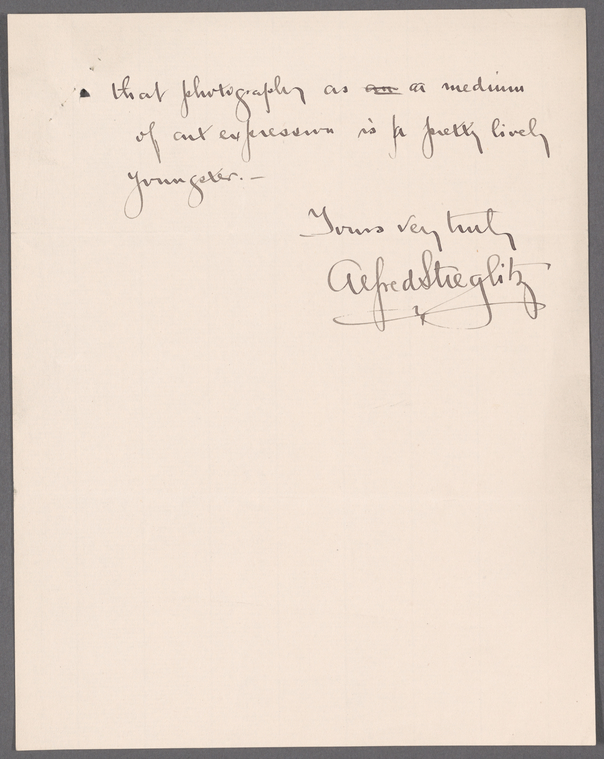 that photography as an a medium
of art expression is a pretty lively
youngster. —
Yours very truly
Alfred Stieglitz